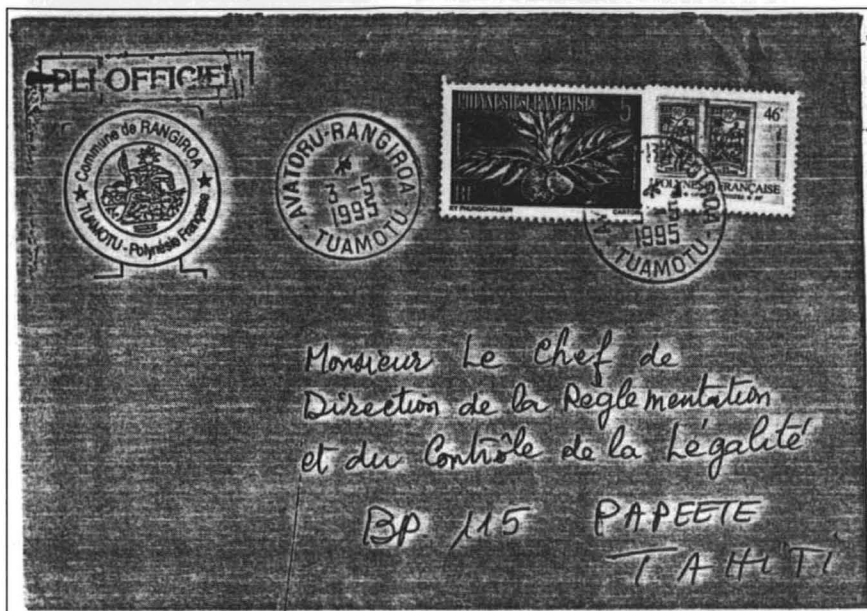 PLI OFFICIEL
Commune de RANGIROA
TUAMOTU - Polynésie Française
AVATORU-RANGIROA
3-5
1995
TUAMOTU
POLYNESIE FRANÇAISE
5
46F
POLYNESIE FRANÇAISE
1995
TUAMOTU
Monsieur Le Chef de
Direction de la Réglementation
et du Contrôle de la Légalité
BP 115 PAPEETE
TAHITI